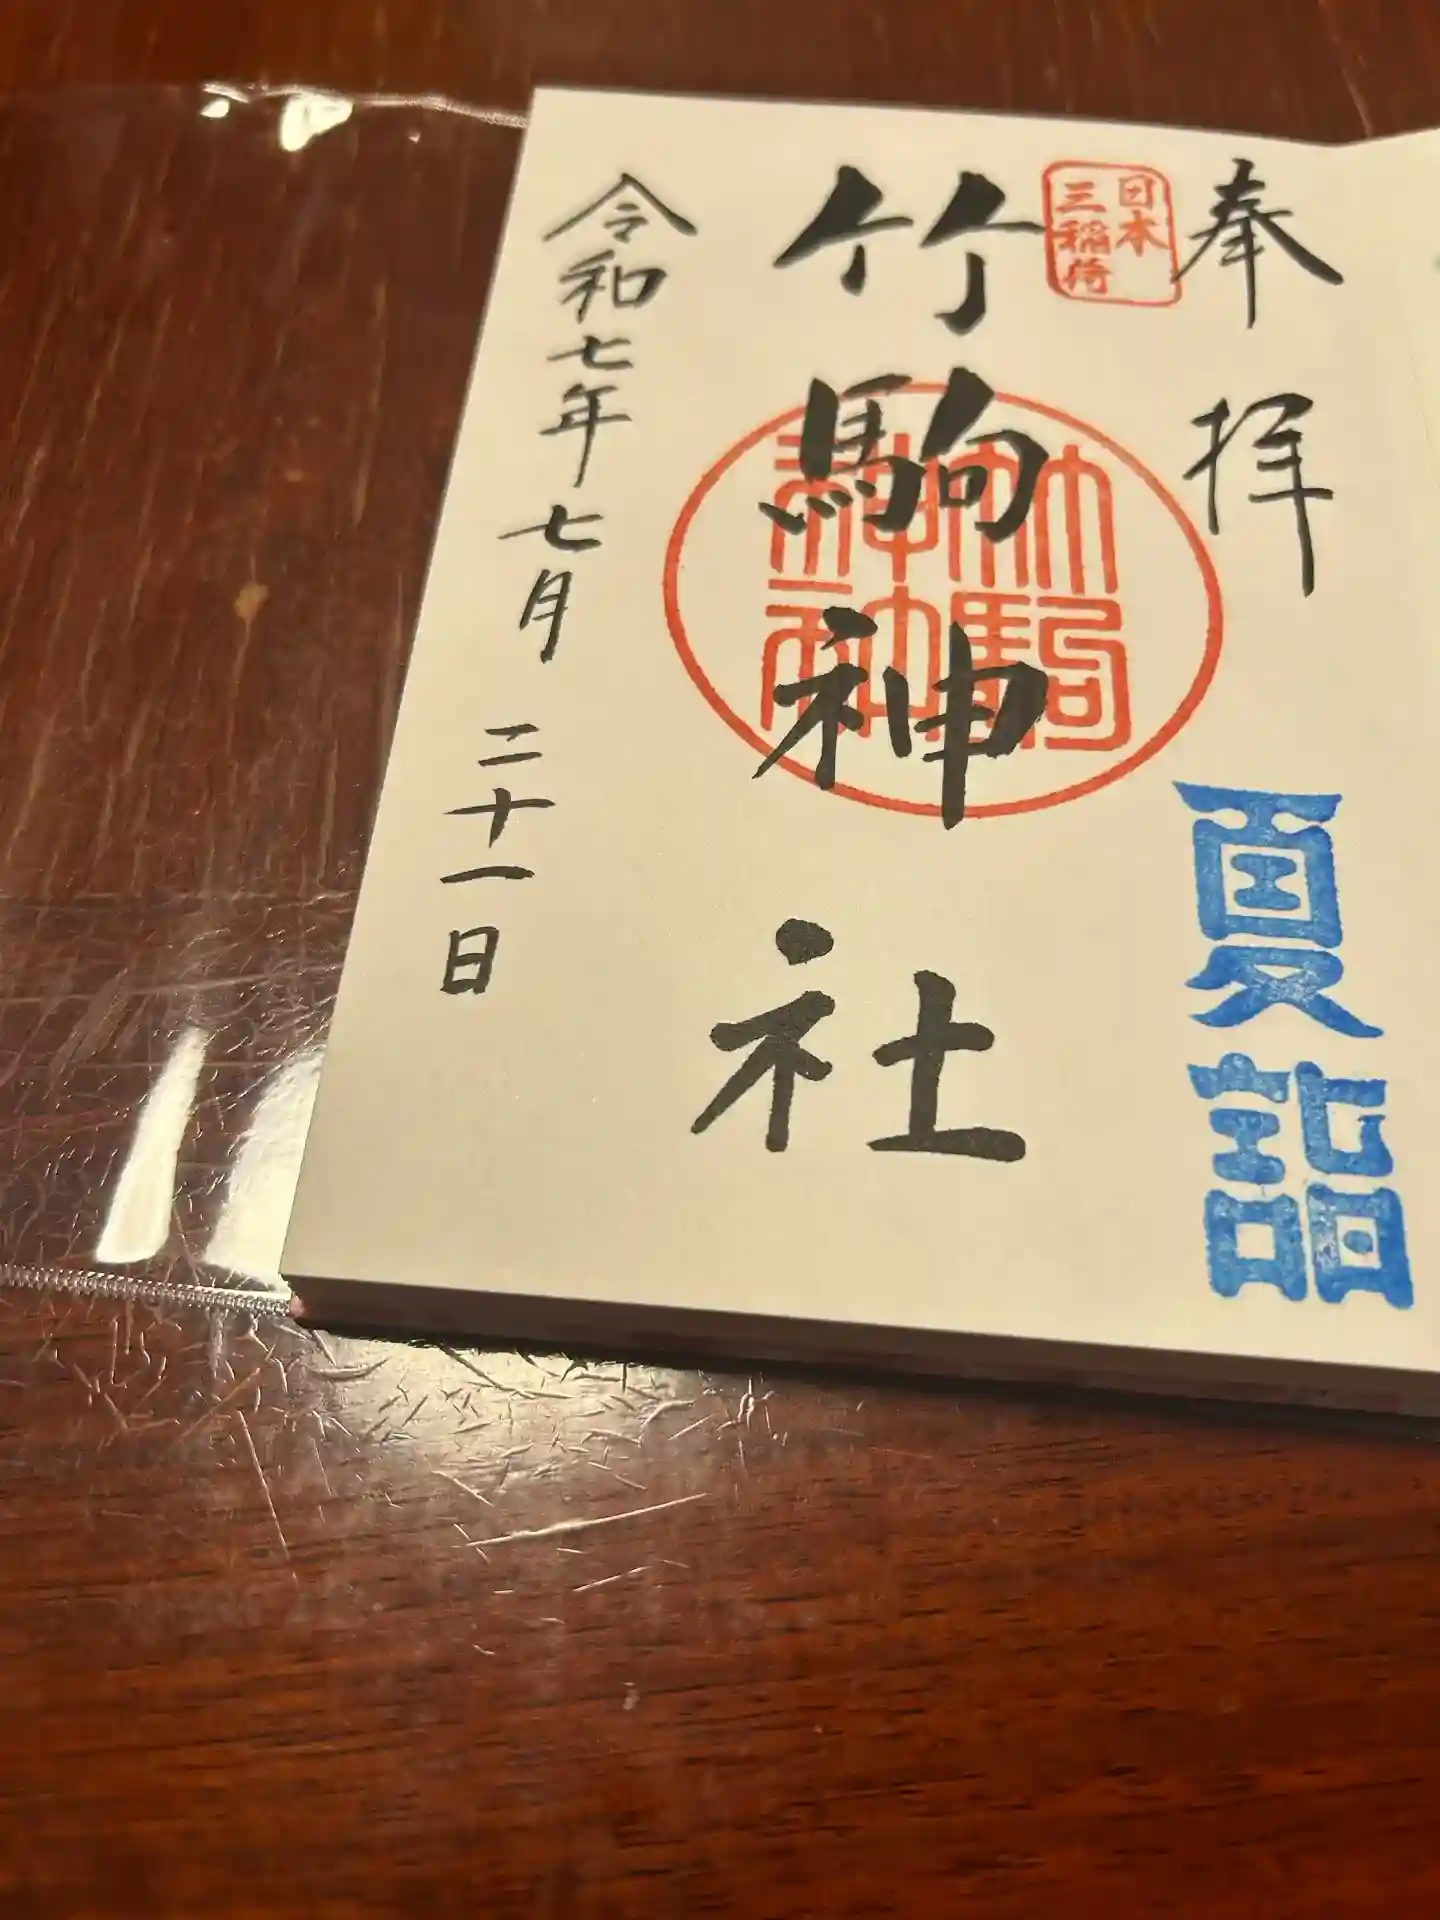 奉拝
夏詣
日本
三稲荷
竹駒神社
竹駒
神社
令和七年七月二十一日